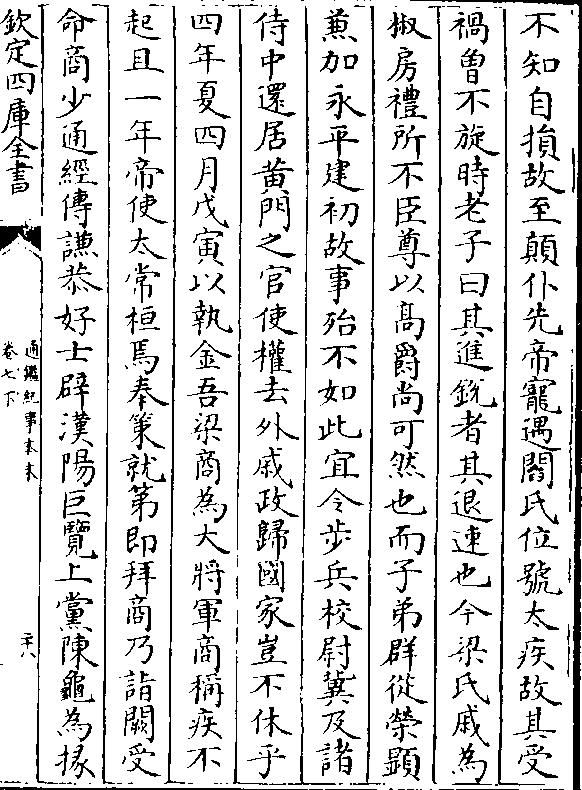 不知自損故至顛仆先帝寵遇閻氏位號太疾故其受
禍曽不旋時老子曰其進銳者其退速也今梁氏戚為
椒房禮所不臣尊以髙爵尚可然也而子弟群從榮顯
兼加永平建初故事殆不如此宜令歩兵校尉冀及諸
侍中還居黃門之官使權去外戚政歸國家豈不休乎
四年夏四月戊寅以執金吾梁商為大將軍商稱疾不
起且一年帝使太常桓焉奉策就第即拜商乃詣闕受
命商少通經傳謙恭好士辟漢陽巨覽上黨陳龜為掾
欽定四庫全書
通鑑紀事本末
卷七下
二十八